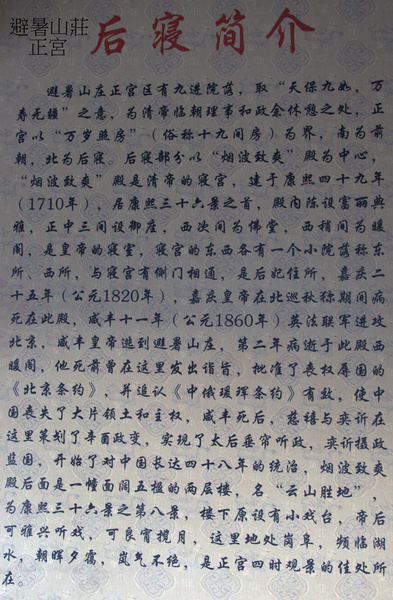 避暑山莊
正宮
后寝简介
避暑山庄正宫区有九进院落，取“天保九如，万
寿无疆”之意，为清帝临朝理事和政余休憩之处，正
宫以“万岁照房”（俗称十九间房）为界，南为前
朝，北为后寝。后寝部分以“烟波致爽”殿为中心，
“烟波致爽”殿是清帝的寝宫，建于康熙四十九年
(1710年)，居康熙三十六景之首，殿内陈设富丽典
雅，正中三间设御座，西次间为佛堂，西稍间为暖
阁，是皇帝的寝室，寝宫的东西各有一个小院落称东
所、西所，与寝宫有侧门相通，是后妃住所，嘉庆二
十五年（公元1820年），嘉庆皇帝在北巡秋狝期间病
死在此殿，咸丰十一年（公元1860年）英法联军进攻
北京，咸丰皇帝逃到避暑山庄，第二年病逝于此殿西
暖阁，他死前曾在这里发出诣旨，批准了丧权辱国的
《北京条约》，并追认《中俄瑷珲条约》有效，使中
国丧失了大片领土和主权，咸丰死后，慈禧与奕訢在
这里策划了辛酉政变，实现了太后垂帘听政，奕訢摄政
监国，开始了对中国长达四十八年的统治，烟波致爽
殿后面是一幢面阔五楹的两层楼，名“云山胜地”，
为康熙三十六景之第八景，楼下原设有小戏台，帝后
可雅兴听戏，可良宵揽月，这里地处岗阜，频临湖
水，朝晖夕霭，岚气不绝，是正宫四时观景的佳处所
在。